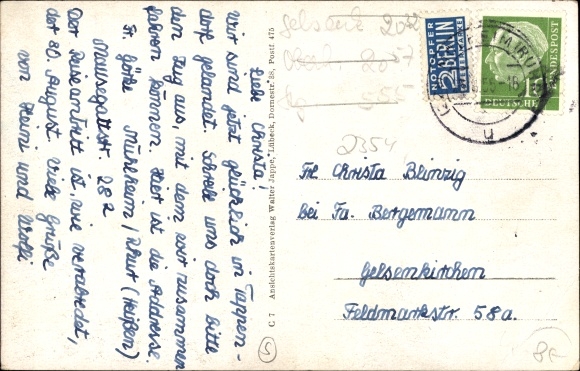 Liebe Christa!
Wir sind jetzt glücklich in Tappen-
dorf gelandet. Schreib uns doch bitte
den Zug aus, mit dem wir zusammen
fahren können. Hier ist die Addresse.
Fr. Göke Mülheim / Ruhr (Heißen)
Mausegattstr 282
Der Reiseantritt ist, wie verabredet,
der 30. August. Viele Grüße
von Heini und Wolfi
C 7 Ansichtskartenverlag Walter Jappe, Lübeck, Dornestr. 38, Postf 475
NOTOPFER
2 BERLIN
STEUERMARKE
10
DEUTSCHE
BUNDESPOST
2354
Frl Christa Blunzig
bei Fa. Bergemann
Gelsenkirchen
Feldmarkstr. 58a.
5
8€